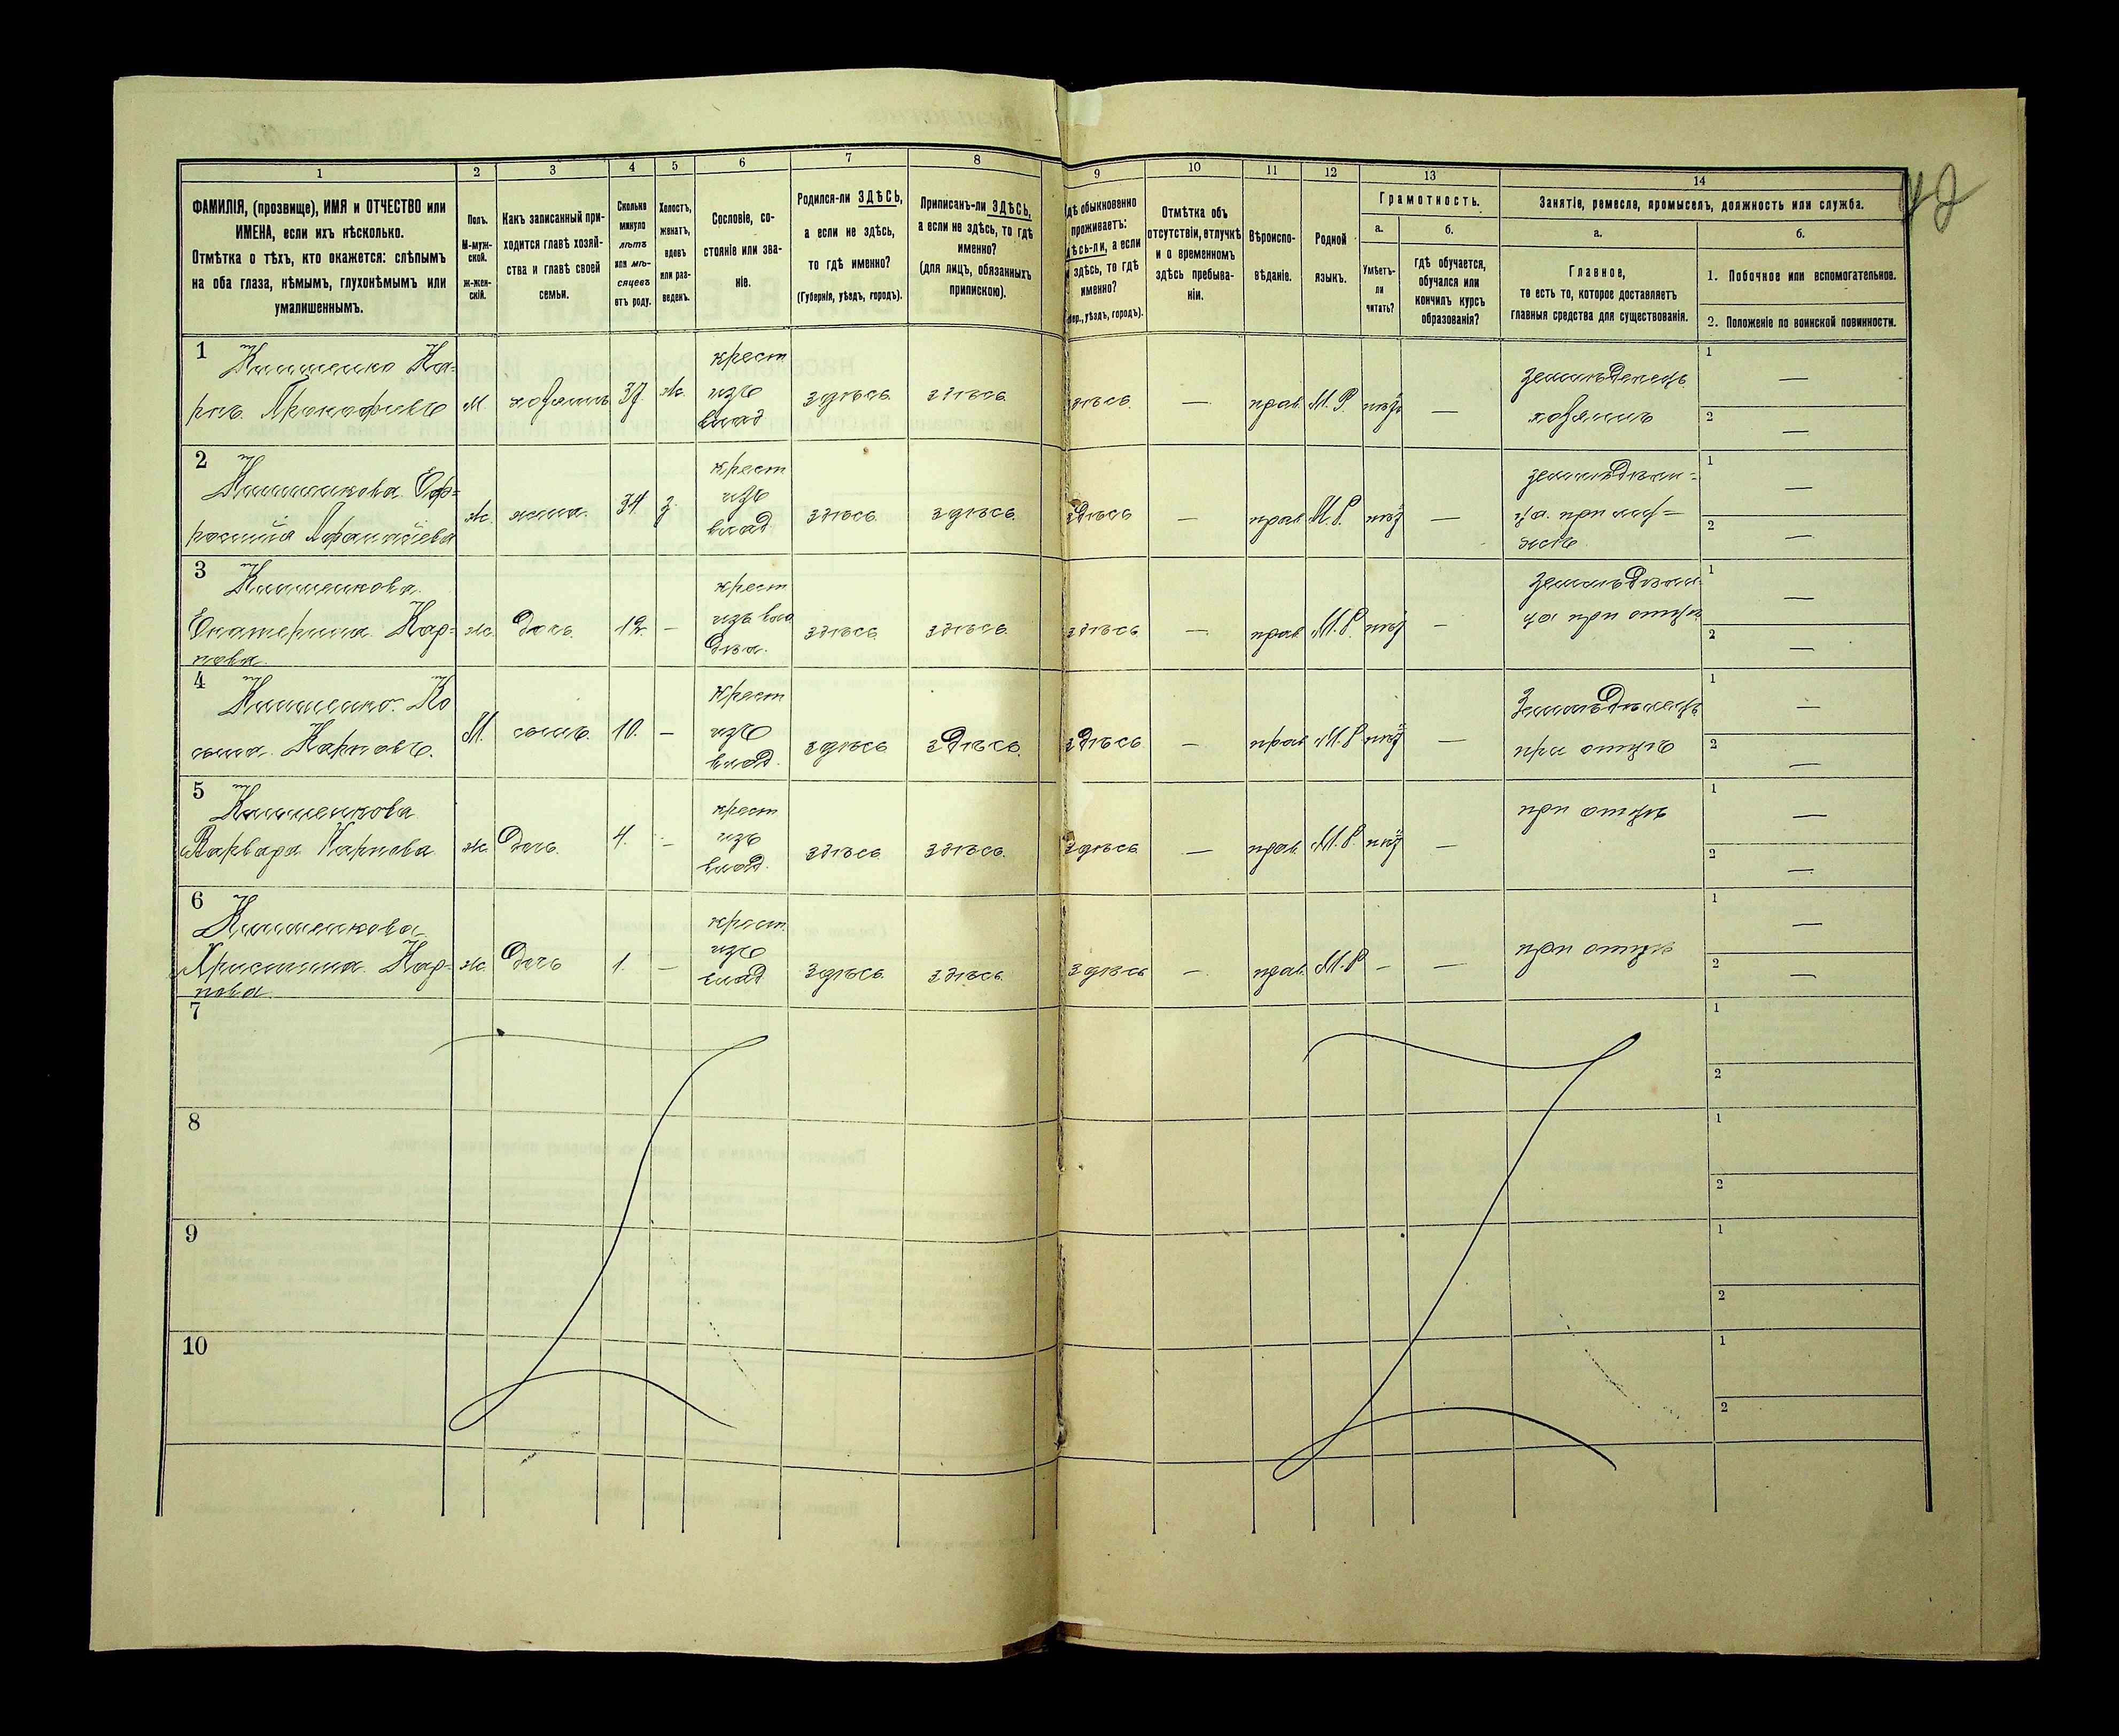 42
1
2
3
4
5
6
7
8
9
10
11
12
13
14
ФАМИЛІЯ, (прозвище), ИМЯ и ОТЧЕСТВО или
ИМЕНА, если ихъ нѣсколько.
Отмѣтка о тѣхъ, кто окажется: слѣпымъ
на оба глаза, нѣмымъ, глухонѣмымъ или
умалишеннымъ.
Полъ.
М-муж-
ской.
ж-жен-
скій.
Какъ записанный при-
ходится главѣ хозяй-
ства и главѣ своей
семьи.
Сколько
минуло
лѣтъ
или мѣ-
сяцевъ
отъ роду.
Холостъ,
женатъ,
вдовъ
или раз-
веденъ.
Сословіе, со-
стояніе или зва-
ніе.
Родился-ли ЗДѢСЬ,
а если не здѣсь,
то гдѣ именно?
(Губернія, уѣздъ, городъ).
Приписанъ-ли ЗДѢСЬ,
а если не здѣсь, то гдѣ
именно?
(для лицъ, обязанныхъ
припискою).
гдѣ обыкновенно
проживаетъ:
здѣсь-ли, а если
не здѣсь, то гдѣ
именно?
(Губер., уѣздъ, городъ).
Отмѣтка объ
отсутствіи, отлучкѣ
и о временномъ
здѣсь пребыва-
ніи.
Вѣроиспо-
вѣданіе.
Родной
языкъ.
Грамотность.
а.
Умѣетъ-
ли
читать?
б.
гдѣ обучается,
обучался или
кончилъ курсъ
образованія?
Занятіе, ремесло, промыселъ, должность или служба.
а.
Главное,
то есть то, которое доставляетъ
главныя средства для существованія.
б.
1. Побочное или вспомогательное.
2. Положеніе по воинской повинности.
1
Ка-
рпъ Прокофьевъ
м. хозяинъ 37. ж.
крест
изъ
влад
здѣсь здѣсь здѣсь — прав. М. Р. —
земледѣлецъ
хозяинъ
1 —
2 —
2
Еф-
росинія
ж. жена. 34 з.
крест
изъ
влад.
здѣсь здѣсь здѣсь — прав М. Р. —
при му-
жѣ
1 —
2 —
3
Екатерина Кар-
пова.
ж. дочь. 12 —
крест
изъ вла
дѣл.
здѣсь здѣсь здѣсь — прав М. Р. —
при отцѣ
1 —
2 —
4
Ко
сьма Карповъ.
М. сынъ. 10. —
крест
изъ
влад.
здѣсь здѣсь здѣсь — прав М. Р —
Земледѣлецъ
при отцѣ
1 —
2 —
5
Варвара Карпова
ж. дочь. 4. —
крест
изъ
влад.
здѣсь здѣсь здѣсь — прав. М. Р. —
при отцѣ
1 —
2 —
6
Христина Кар-
пова.
ж. дочь 1. —
крест.
изъ
влад
здѣсь здѣсь здѣсь — прав. М. Р — —
при отцѣ
1 —
2 —
7
1
2
8
1
2
9
1
2
10
1
2